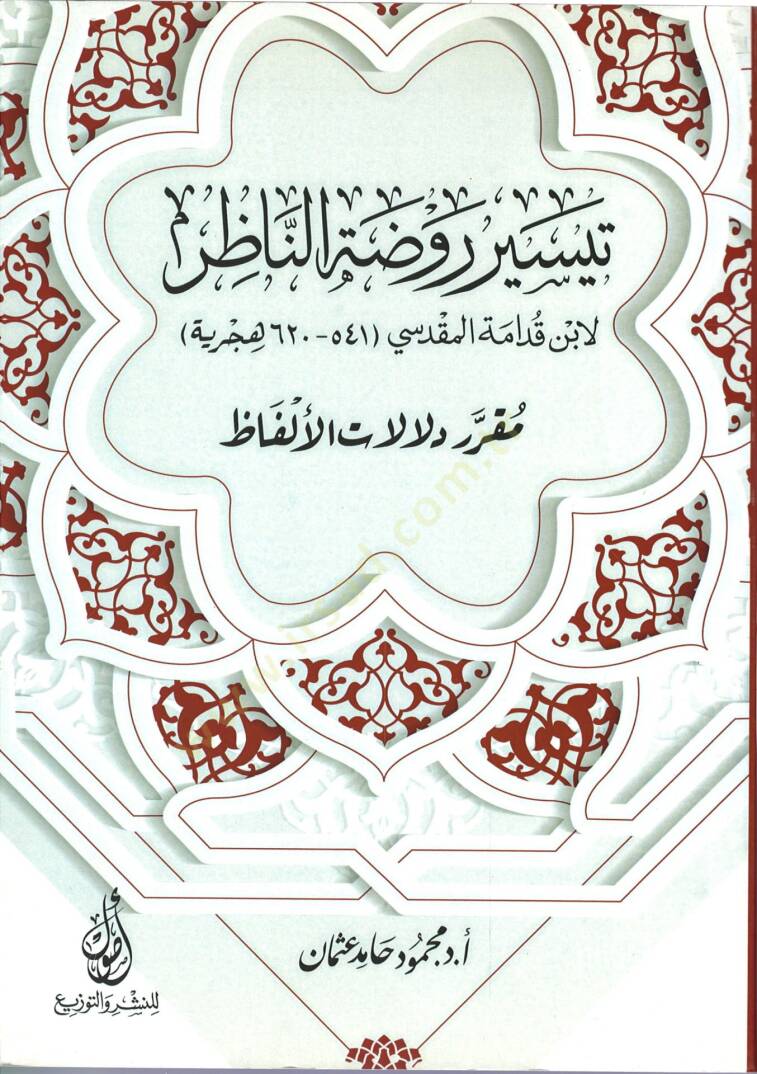 تيسير روضة الناظر
لابن قُدامة المقدسي (٥٤١-٦٢٠ هجرية)
مُقرَّر دلالات الألفاظ
www.irsad.com.tr
أ.د محمود حامد عثمان
أصول
للنشر والتوزيع